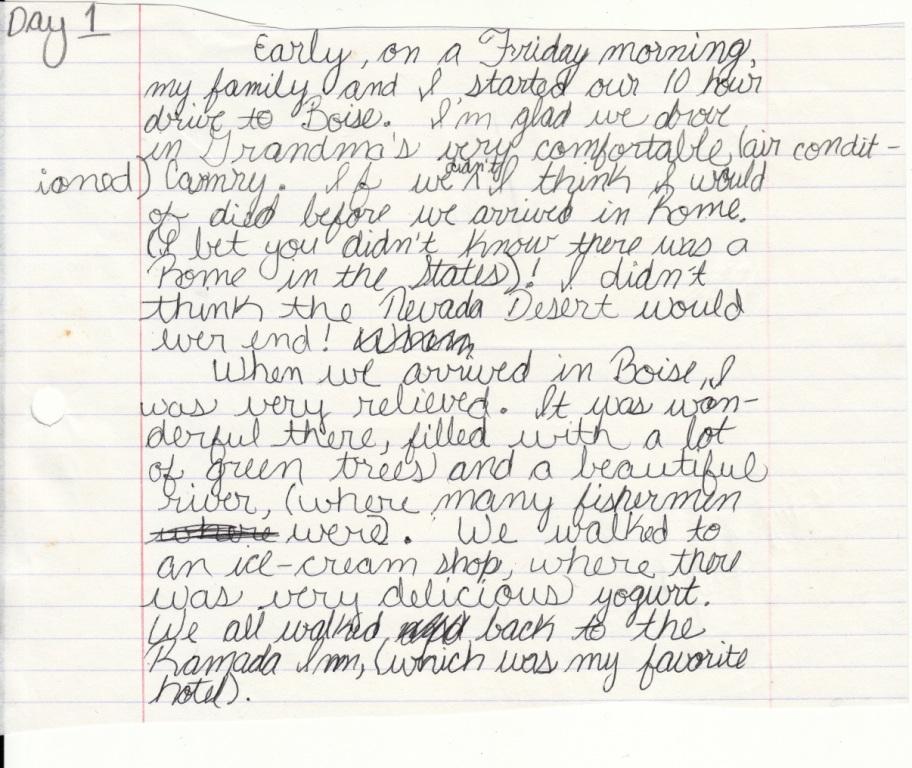 Day 1
Early, on a Friday morning,
my family and I started our 10 hour
drive to Boise. I'm glad we drove
in Grandma's very comfortable (air condit-
ioned) Camry. If we didn't I think I would
of died before we arrived in Rome.
(I bet you didn't know there was a
Rome in the States)! I didn't
think the Nevada Desert would
ever end!
When we arrived in Boise, I
was very relieved. It was won-
derful there, filled with a lot
of green trees and a beautiful
river, (where many fishermen
were). We walked to
an ice-cream shop, where there
was very delicious yogurt.
We all walked back to the
Ramada Inn, (which was my favorite
hotel).